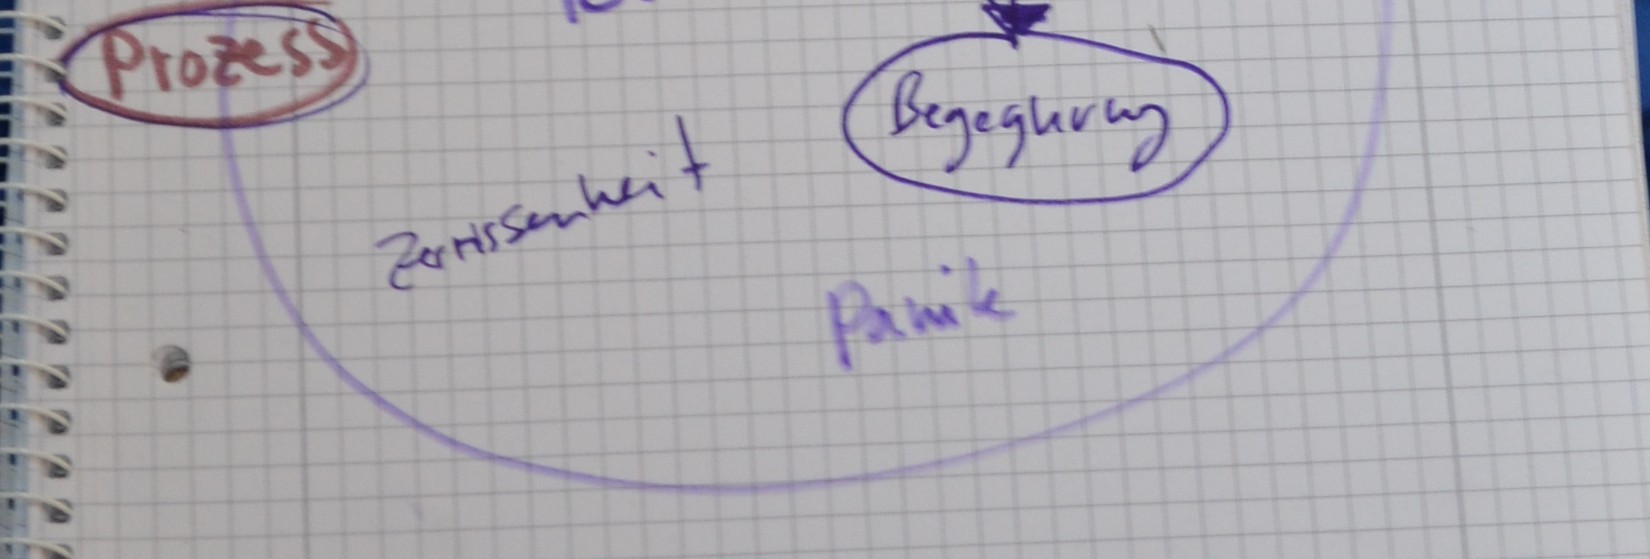 Prozess
Begegnung
Zerrissenheit
Panik